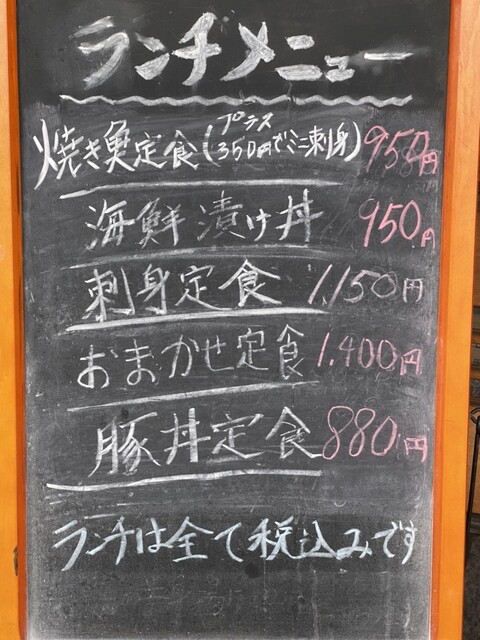 ランチメニュー
焼き魚定食(プラス350円でミニ刺身) 950円
海鮮漬け丼 950円
刺身定食 1,150円
おまかせ定食 1.400円
豚丼定食 880円
ランチは全て税込みです